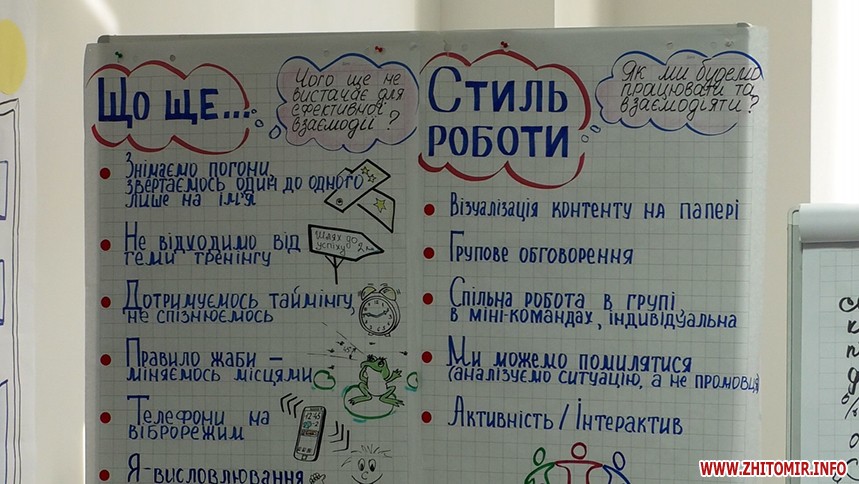 Що ще...
Чого ще не
вистачає для
ефективної
взаємодії?
Знімаємо погони,
звертаємось один до одного
лише на ім'я
Не відходимо від
теми тренінгу
Шлях до
успіху 2м
Дотримуємось таймінгу,
не спізнюємось
Правило жаби –
міняємось місцями
Телефони на
віброрежим
Я-висловлювання
Стиль
роботи
Як ми будемо
працювати та
взаємодіяти?
Візуалізація контенту на папері
Групове обговорення
Спільна робота в групі,
в міні-командах, індивідуальна
Ми можемо помилятися
(аналізуємо ситуацію, а не промовця)
Активність / Інтерактив
WWW.ZHITOMIR.INFO